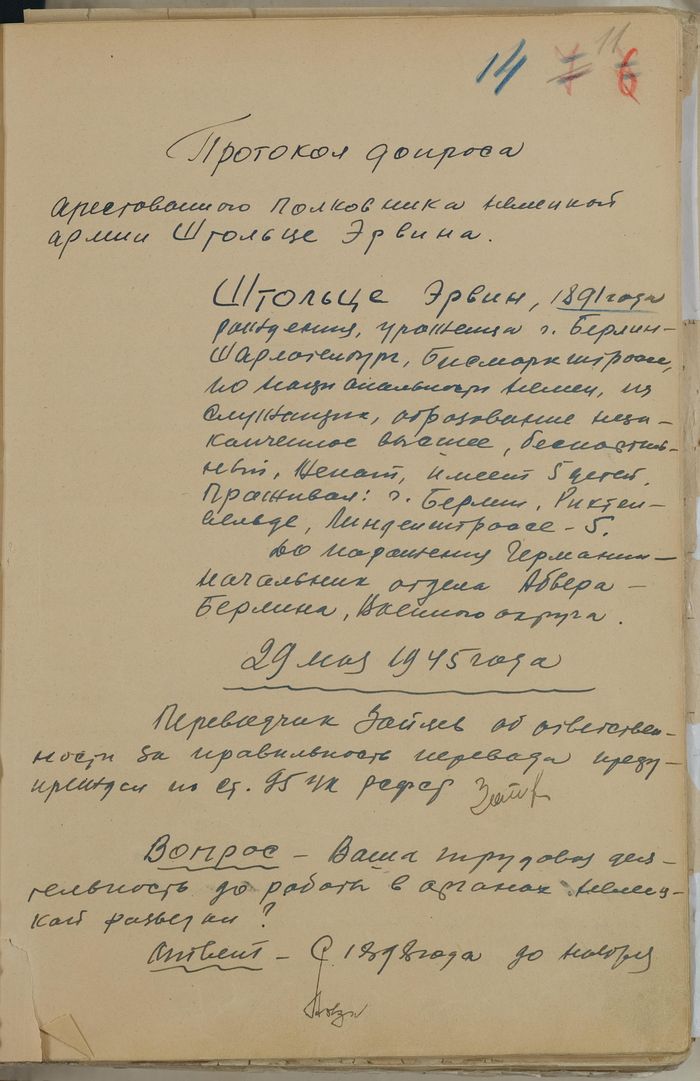 14 7 11 6
Протокол допроса
арестованного полковника немецкой
армии Штольце Эрвина.
Штольце Эрвин, 1891 года
рождения, уроженца г. Берлин-
Шарлотенбург, Бисмаркштрассе,
по национальности немец, из
служащих, образование неза-
конченное высшее, беспартий-
ный, женат, имеет 5 детей.
Проживал: г. Берлин, Лихтен-
фельде, Линденштрассе - 5.
До поражения Германии -
начальник отдела Абвера -
Берлина, Военного округа.
29 мая 1945 года
Переводчик Зайцев об ответствен-
ности за правильность перевода преду-
прежден по ст. 95 УК РСФСР
Вопрос - Ваша трудовая дея-
тельность до работы в органах немец-
кой разведки?
Ответ - С 1898 года до ноября